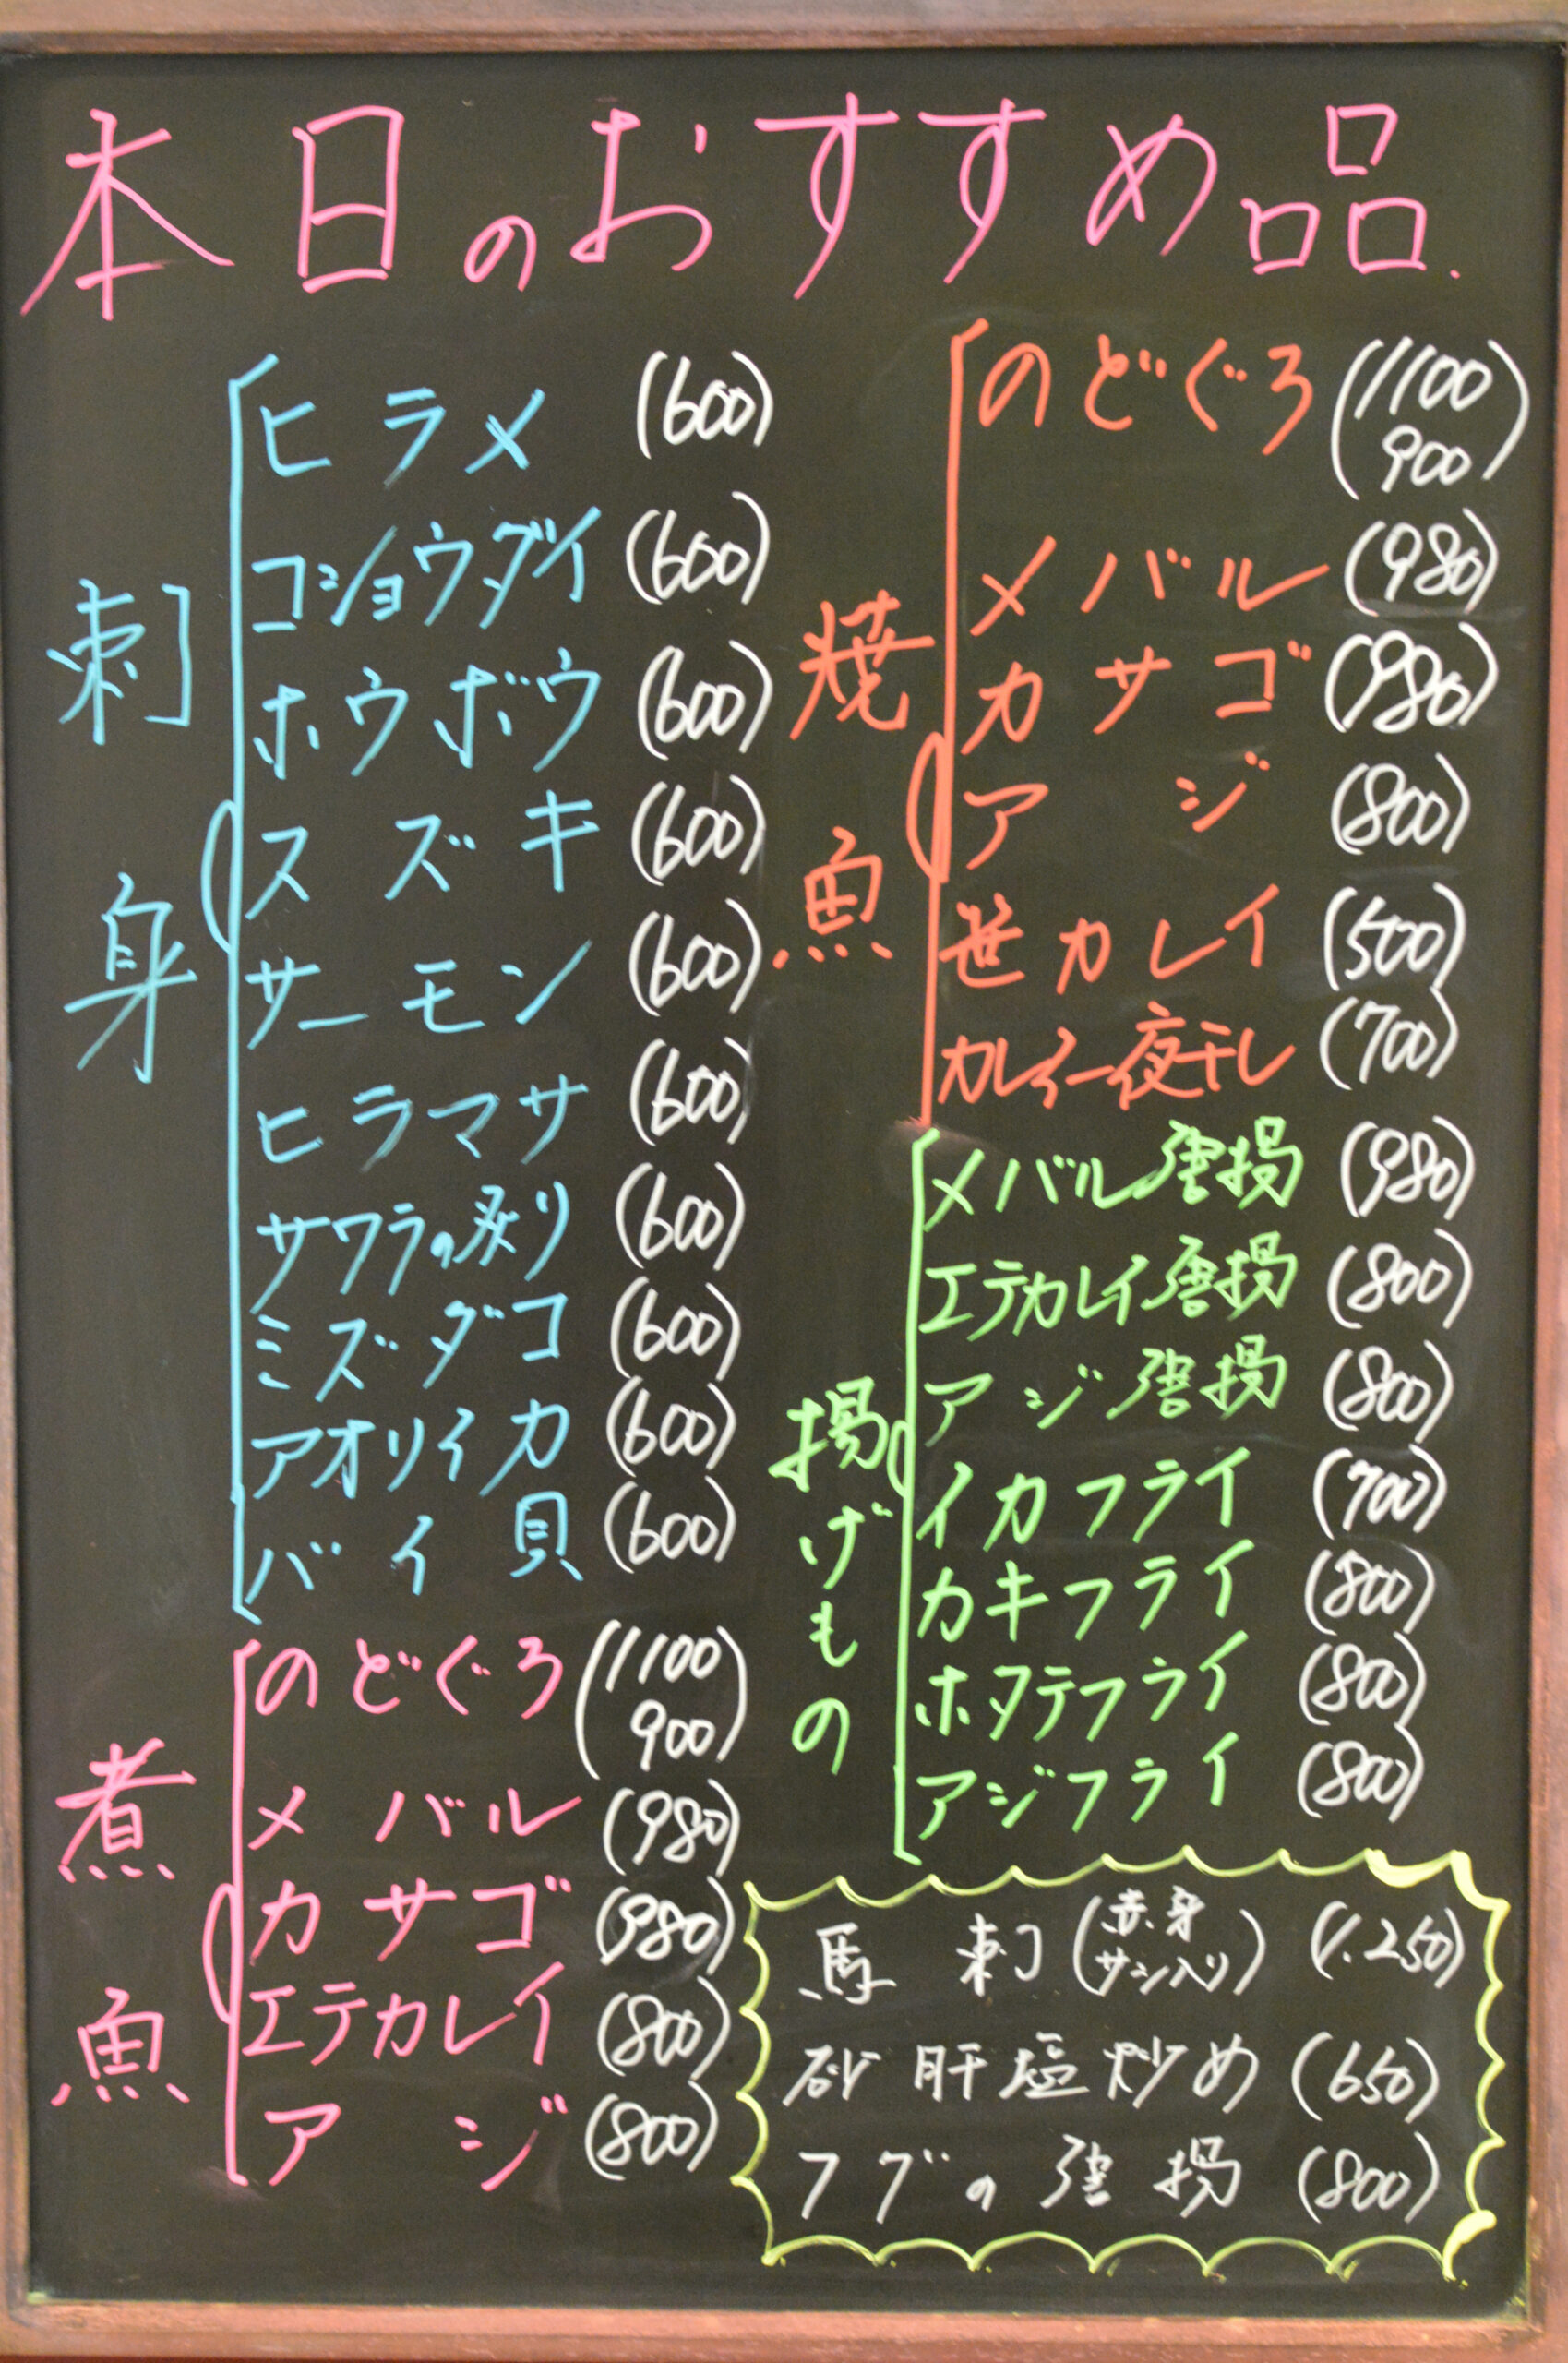 本日のおすすめ品.
刺身
ヒラメ (600)
コショウダイ (600)
ホウボウ (600)
スズキ (600)
サーモン (600)
ヒラマサ (600)
サワラの炙り (600)
ミズダコ (600)
アオリイカ (600)
バイ貝 (600)
煮魚
のどぐろ (1100
900)
メバル (980)
カサゴ (980)
エテカレイ (800)
アジ (800)
焼魚
のどぐろ (1100
900)
メバル (980)
カサゴ (980)
アジ (800)
笹カレイ (500)
カレイ一夜干し (700)
揚げもの
メバル唐揚 (980)
エテカレイ唐揚 (800)
アジ唐揚 (800)
イカフライ (700)
カキフライ (800)
ホタテフライ (800)
アジフライ (800)
馬刺(赤身
サシ入り) (1.250)
砂肝塩炒め (650)
フグの唐揚 (800)